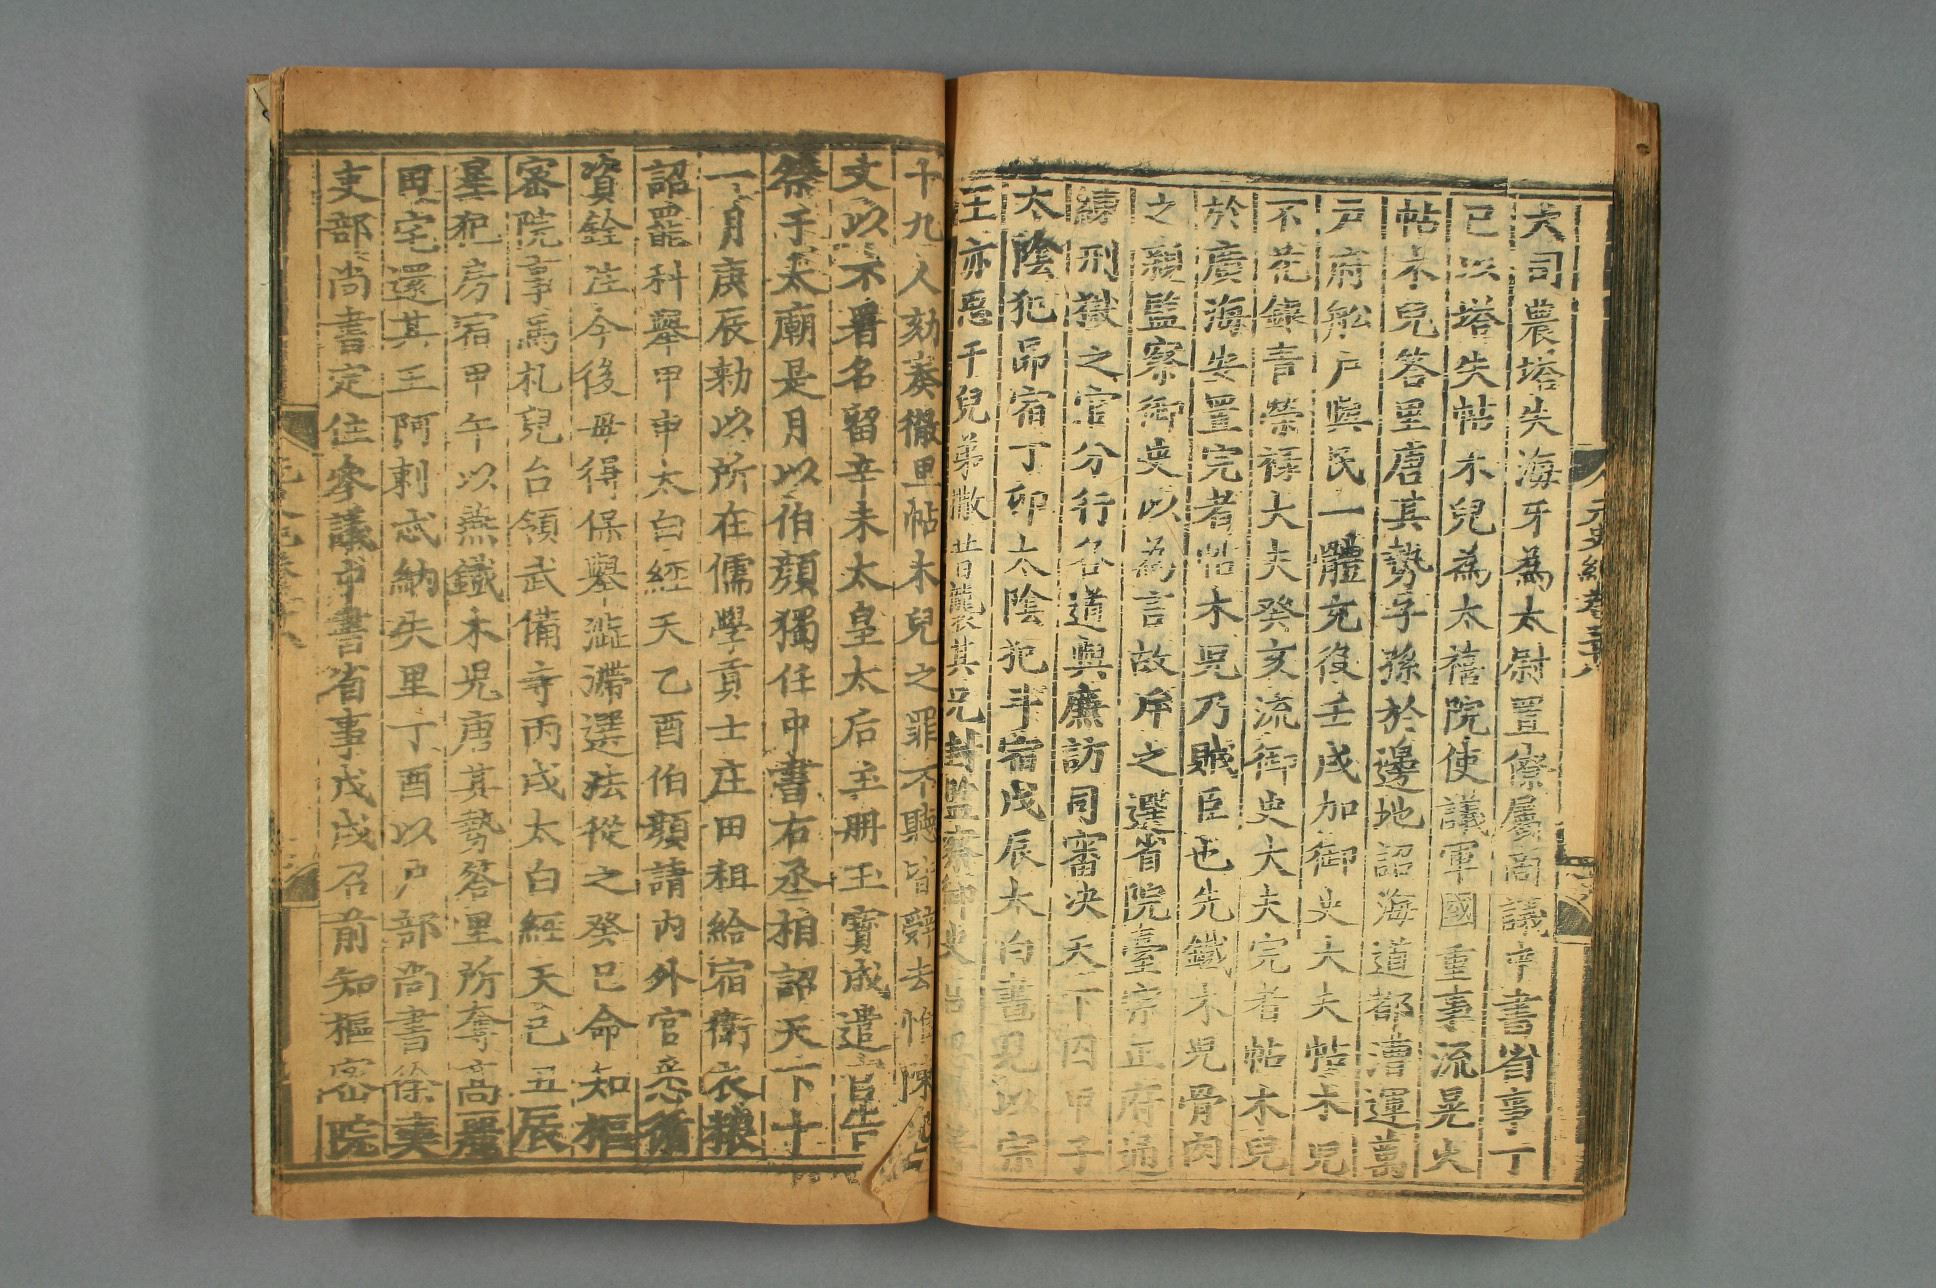 大司農塔失海牙為太尉置僚屬商議中書省事丁
巳以塔失帖木兒為太禧院使議軍國重事流晃火
帖木兒答里唐其勢子孫於邊地詔海道都漕運萬
戸府舩戸與民一體充役壬戌加御史大夫帖木兒
不花錄青榮祿大夫癸亥流御史大夫完者帖木兒
於廣海安置完者帖木兒乃賊臣也先鐵木兒骨肉
之親監察御史以為言故斥之選省院臺宗正府通
練刑獄之官分行各道與廉訪司審决天下囚甲子
太陰犯昴宿丁卯太陰犯斗宿戊辰太白晝見以宗
王亦思干兒弟撒昔襲其兄封監察御史呂思誠等
十九人劾奏徹里帖木兒之罪不聽皆辭去惟陳允
文以不署名留辛未太皇太后玉册玉寶成遣官告
祭于太廟是月以伯顏獨任中書右丞相詔天下十
一月庚辰勑以所在儒學貢士庄田租給宿衛衣粮
詔罷科舉甲申太白經天乙酉伯顏請内外官悉循
資銓注今後毋得保舉澁滯選法從之癸巳命知樞
密院事馬札兒台領武備寺丙戌太白經天己丑辰
星犯房宿甲午以燕鐵木兒唐其勢答里所奪高麗
田宅還其王阿剌忒納失里丁酉以戸部尚書徐奭
吏部尚書定住參議中書省事戊戌召前知樞密院
元史紀卷三十八